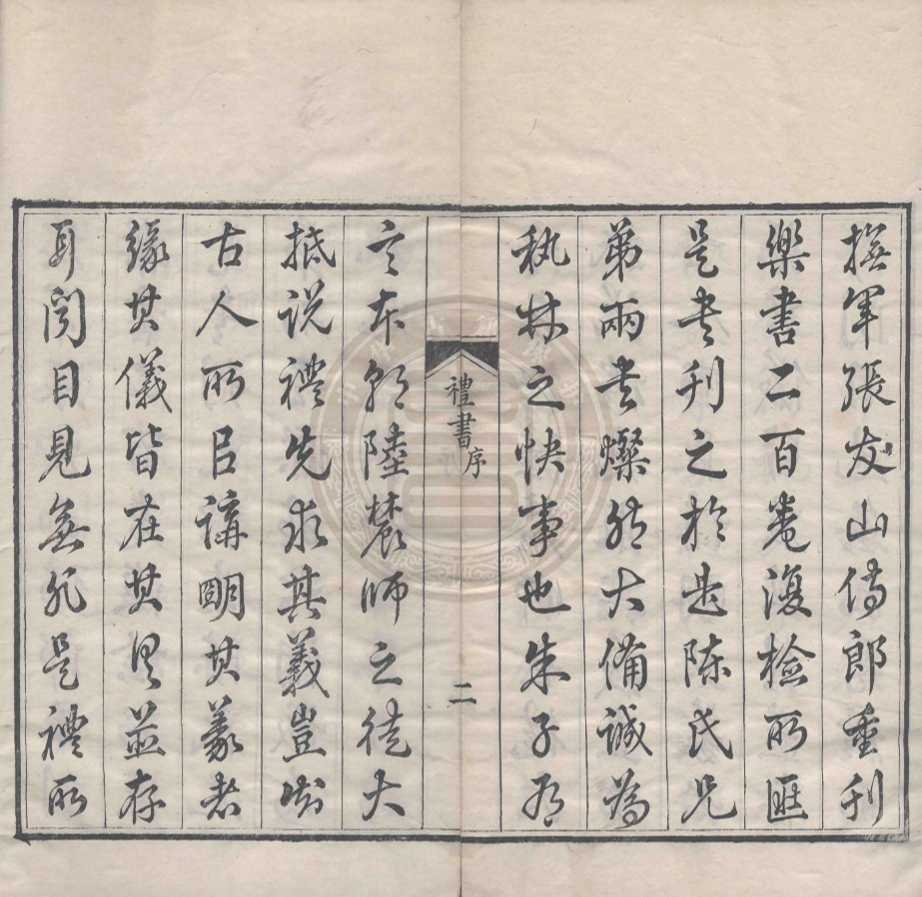 撫軍張友山侍郎重刊
樂書二百卷復檢所匯
是書刊之於是陳氏兄
弟兩書燦然大備誠為
秇林之快事也朱子有
禮書序
二
言本朝陸農師之徒大
抵説禮先求其義豈知
古人所以講明其義者
緣其儀皆在其具並存
耳聞目見無非是禮所